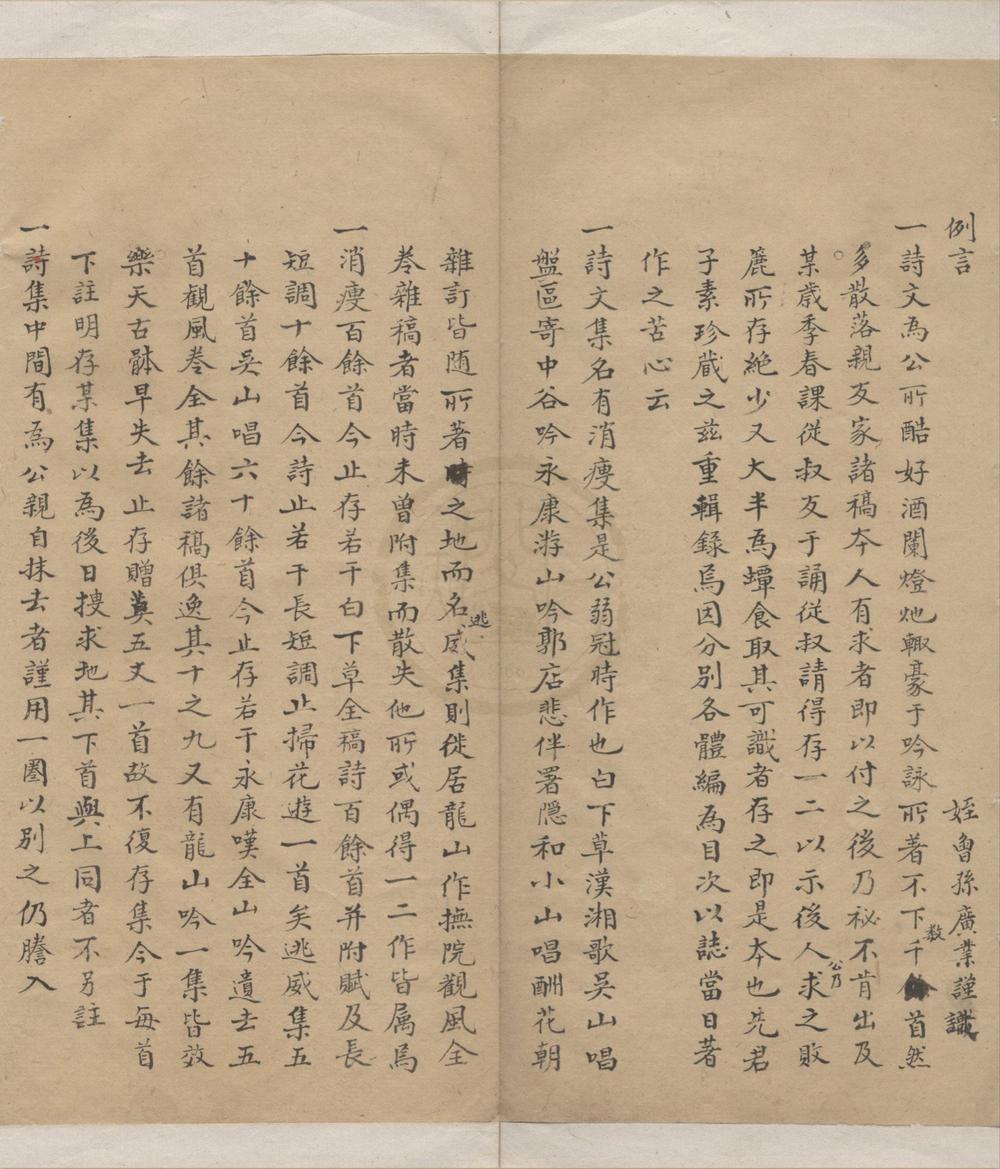 例言
姪曾孫廣業謹識
一詩文為公所酷好酒闌燈灺輙豪于吟詠所著不下千數首然
多散落親友家諸稿夲人有求者即以付之後乃祕不肯出及
某歳季春課從叔友于誦從叔請得存一二以示後人公乃求之敗
簏所存絶少又大半為蟫食取其可識者存之即是夲也先君
子素珍蔵之茲重輯録焉因分别各體編為目次以誌當日著
作之苦心云
一詩文集名有消瘦集是公弱冠時作也白下草漢湘歌吴山唱
盤區寄中谷吟永康游山吟郭店悲伴署隠和小山唱酬花朝
雜訂皆随所著之地而名逃威集則徙居龍山作撫院觀風全
巻雜稿者當時未曾附集而散失他所或偶得一二作皆属焉
一消瘦百餘首今止存若干白下草全稿詩百餘首并附賦及長
短調十餘首今詩止若干長短調止掃花遊一首矣逃威集五
十餘首吴山唱六十餘首今止存若干永康嘆全山吟遺去五
首觀風巻全其餘諸稿俱逸其十之九又有龍山吟一集皆效
樂天古骵早失去止存贈奠五丈一首故不復存集今于每首
下註明存某集以為後日捜求地其下首與上同者不另註
一詩集中間有為公親自抹去者謹用一圏以别之仍謄入